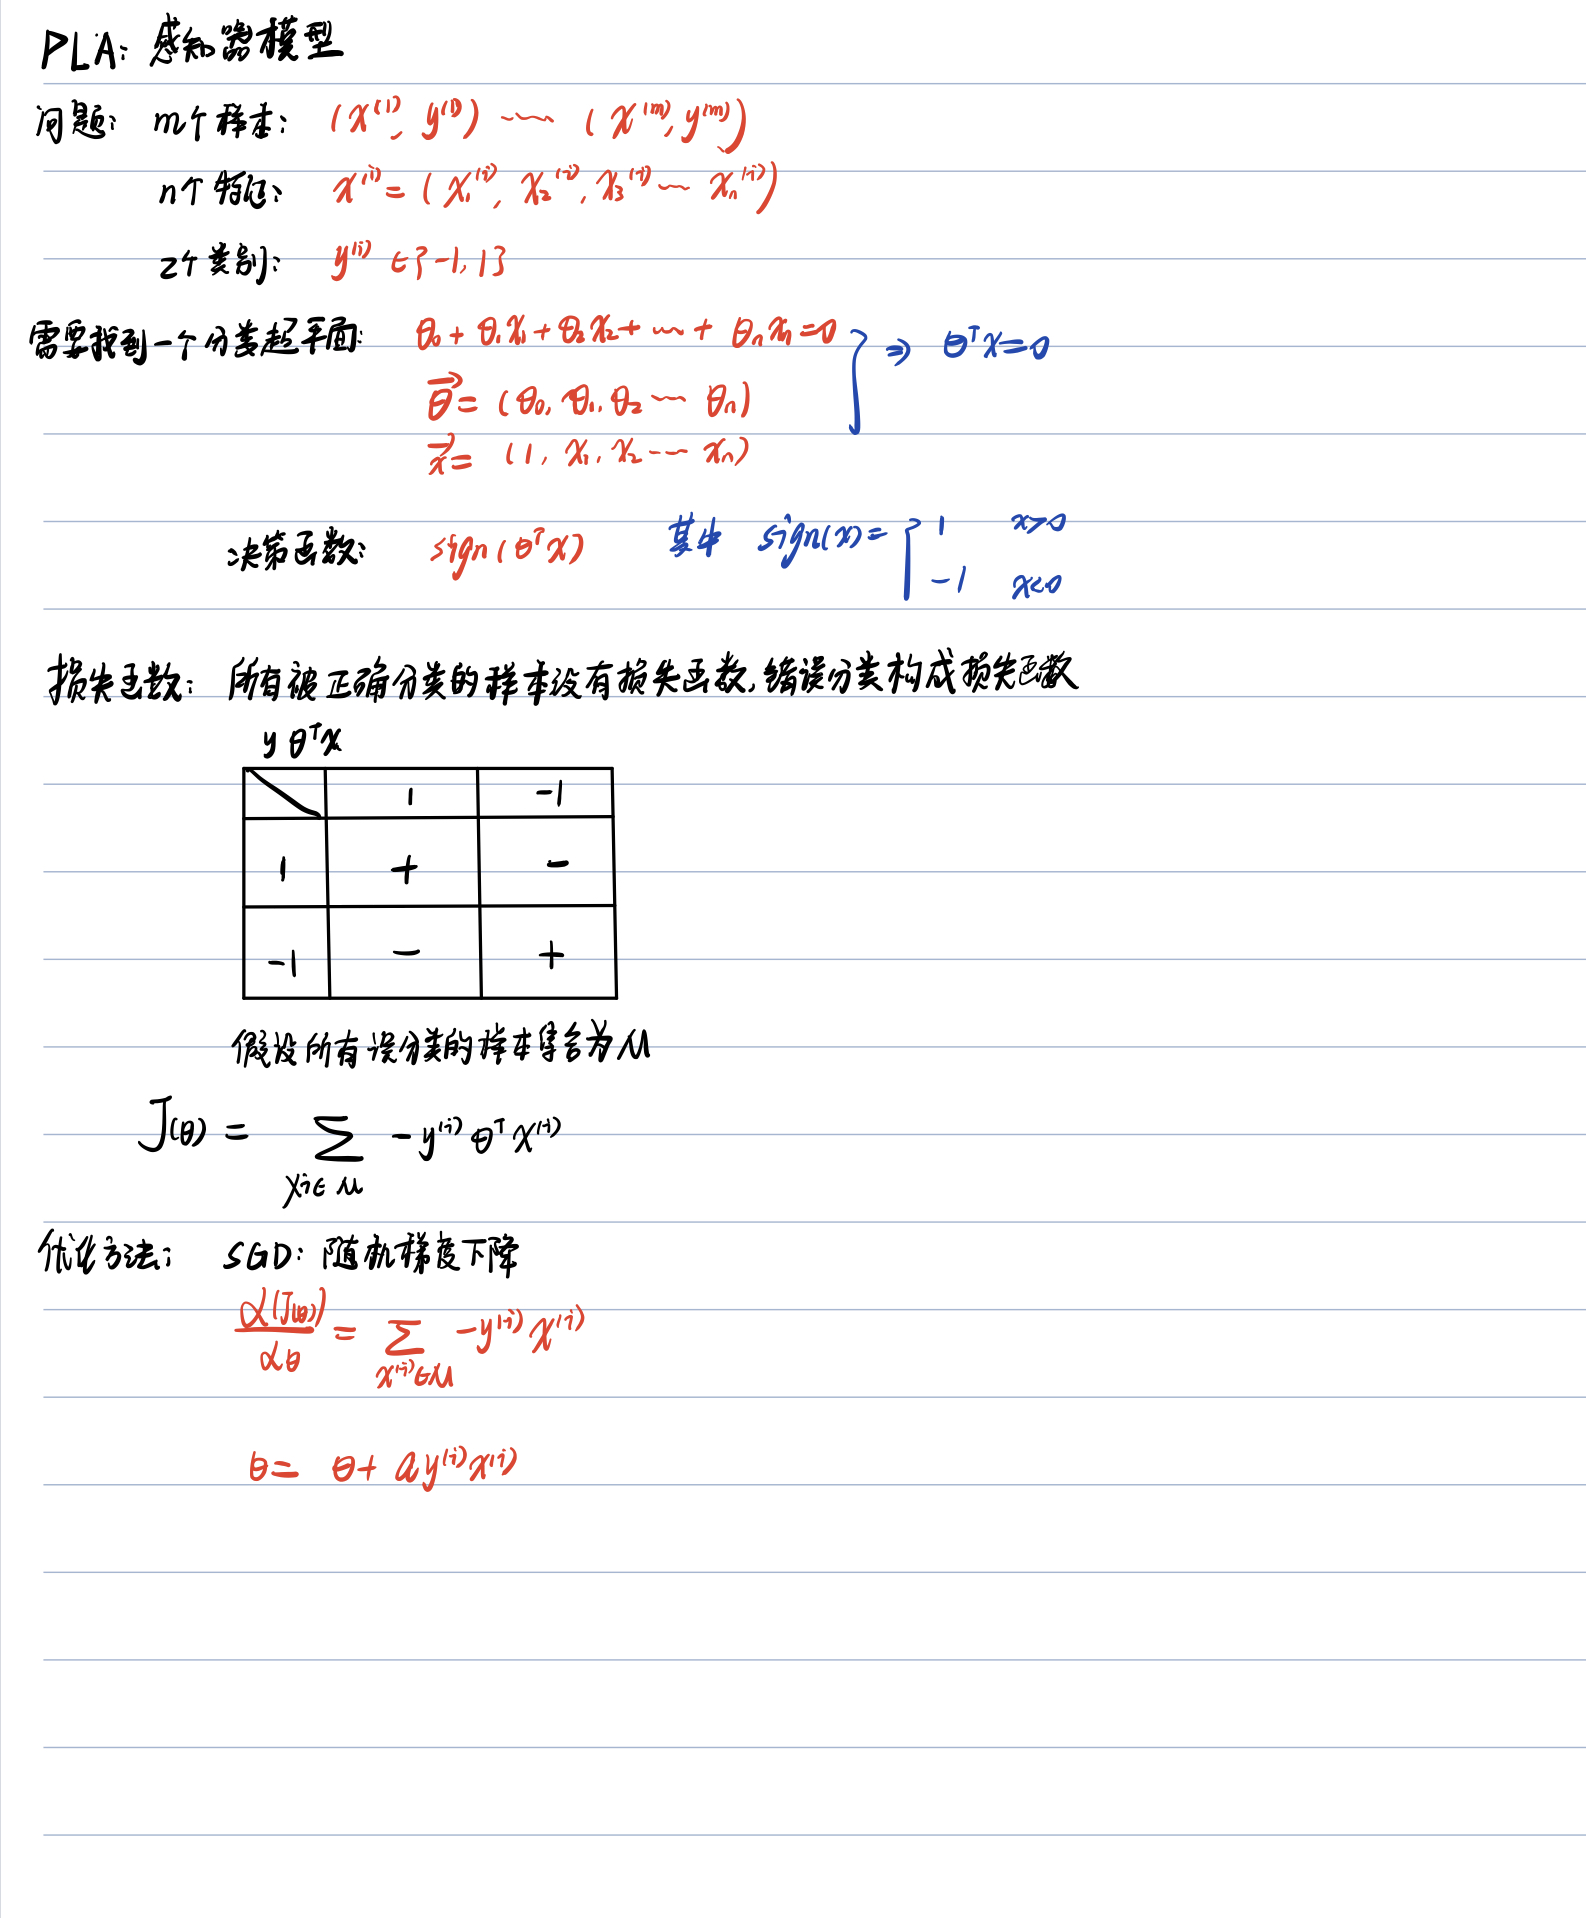 PLA: 感知器模型
问题: m个样本: (x⁽¹⁾, y⁽¹⁾) ⋯ (x⁽ᵐ⁾, y⁽ᵐ⁾)
n个特征: x⁽ⁱ⁾ = (x₁⁽ⁱ⁾, x₂⁽ⁱ⁾, x₃⁽ⁱ⁾ ⋯ xₙ⁽ⁱ⁾)
2个类别: y⁽ⁱ⁾ ∈ {-1, 1}
需要找到一个分类超平面: θ₀ + θ₁x₁ + θ₂x₂ + ⋯ + θₙxₙ = 0 } ⇒ θᵀx = 0
θ⃗ = (θ₀, θ₁, θ₂ ⋯ θₙ)
x⃗ = (1, x₁, x₂ ⋯ xₙ)
决策函数: sign(θᵀx) 其中 sign(x) = { 1 x>0
-1 x<0
损失函数: 所有被正确分类的样本没有损失函数, 错误分类构成损失函数
y θᵀx
1 -1
1 + -
-1 - +
假设所有误分类的样本集合为M
J(θ) = ∑ -y⁽ⁱ⁾ θᵀ x⁽ⁱ⁾
xⁱ ∈ M
优化方法: SGD: 随机梯度下降
α(J(θ)) / αθ = ∑ -y⁽ⁱ⁾ x⁽ⁱ⁾
x⁽ⁱ⁾ ∈ M
θ = θ + a y⁽ⁱ⁾ x⁽ⁱ⁾